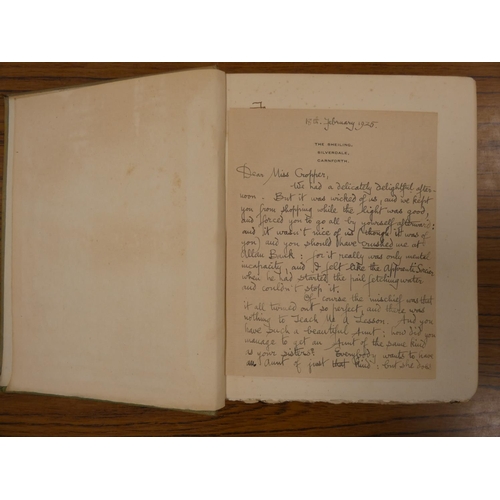 15th. February, 1925.
THE SHEILING,
SILVERDALE,
CARNFORTH.
Dear Miss Cropper,
We had a delicately delightful after-
noon. But it was wicked of us, and we kept
you from shopping while the light was good,
and forced you to go all by yourself afterwards:
and it wasn't nice of us (though it was of
you) and you should have crushed me at
Allan Bank: for it really was only mental
incapacity, and I felt like the Apprenti Sorcier
when he had started the pail fetching water
and couldn't stop it.
Of course the mischief was that
it all turned out so perfect, and there was
nothing to Teach Us A Lesson. And you
have such a beautiful Aunt: how did you
manage to get an Aunt of the same kind
as your sisters? Everybody wants to have
an Aunt of just that kind; but she does